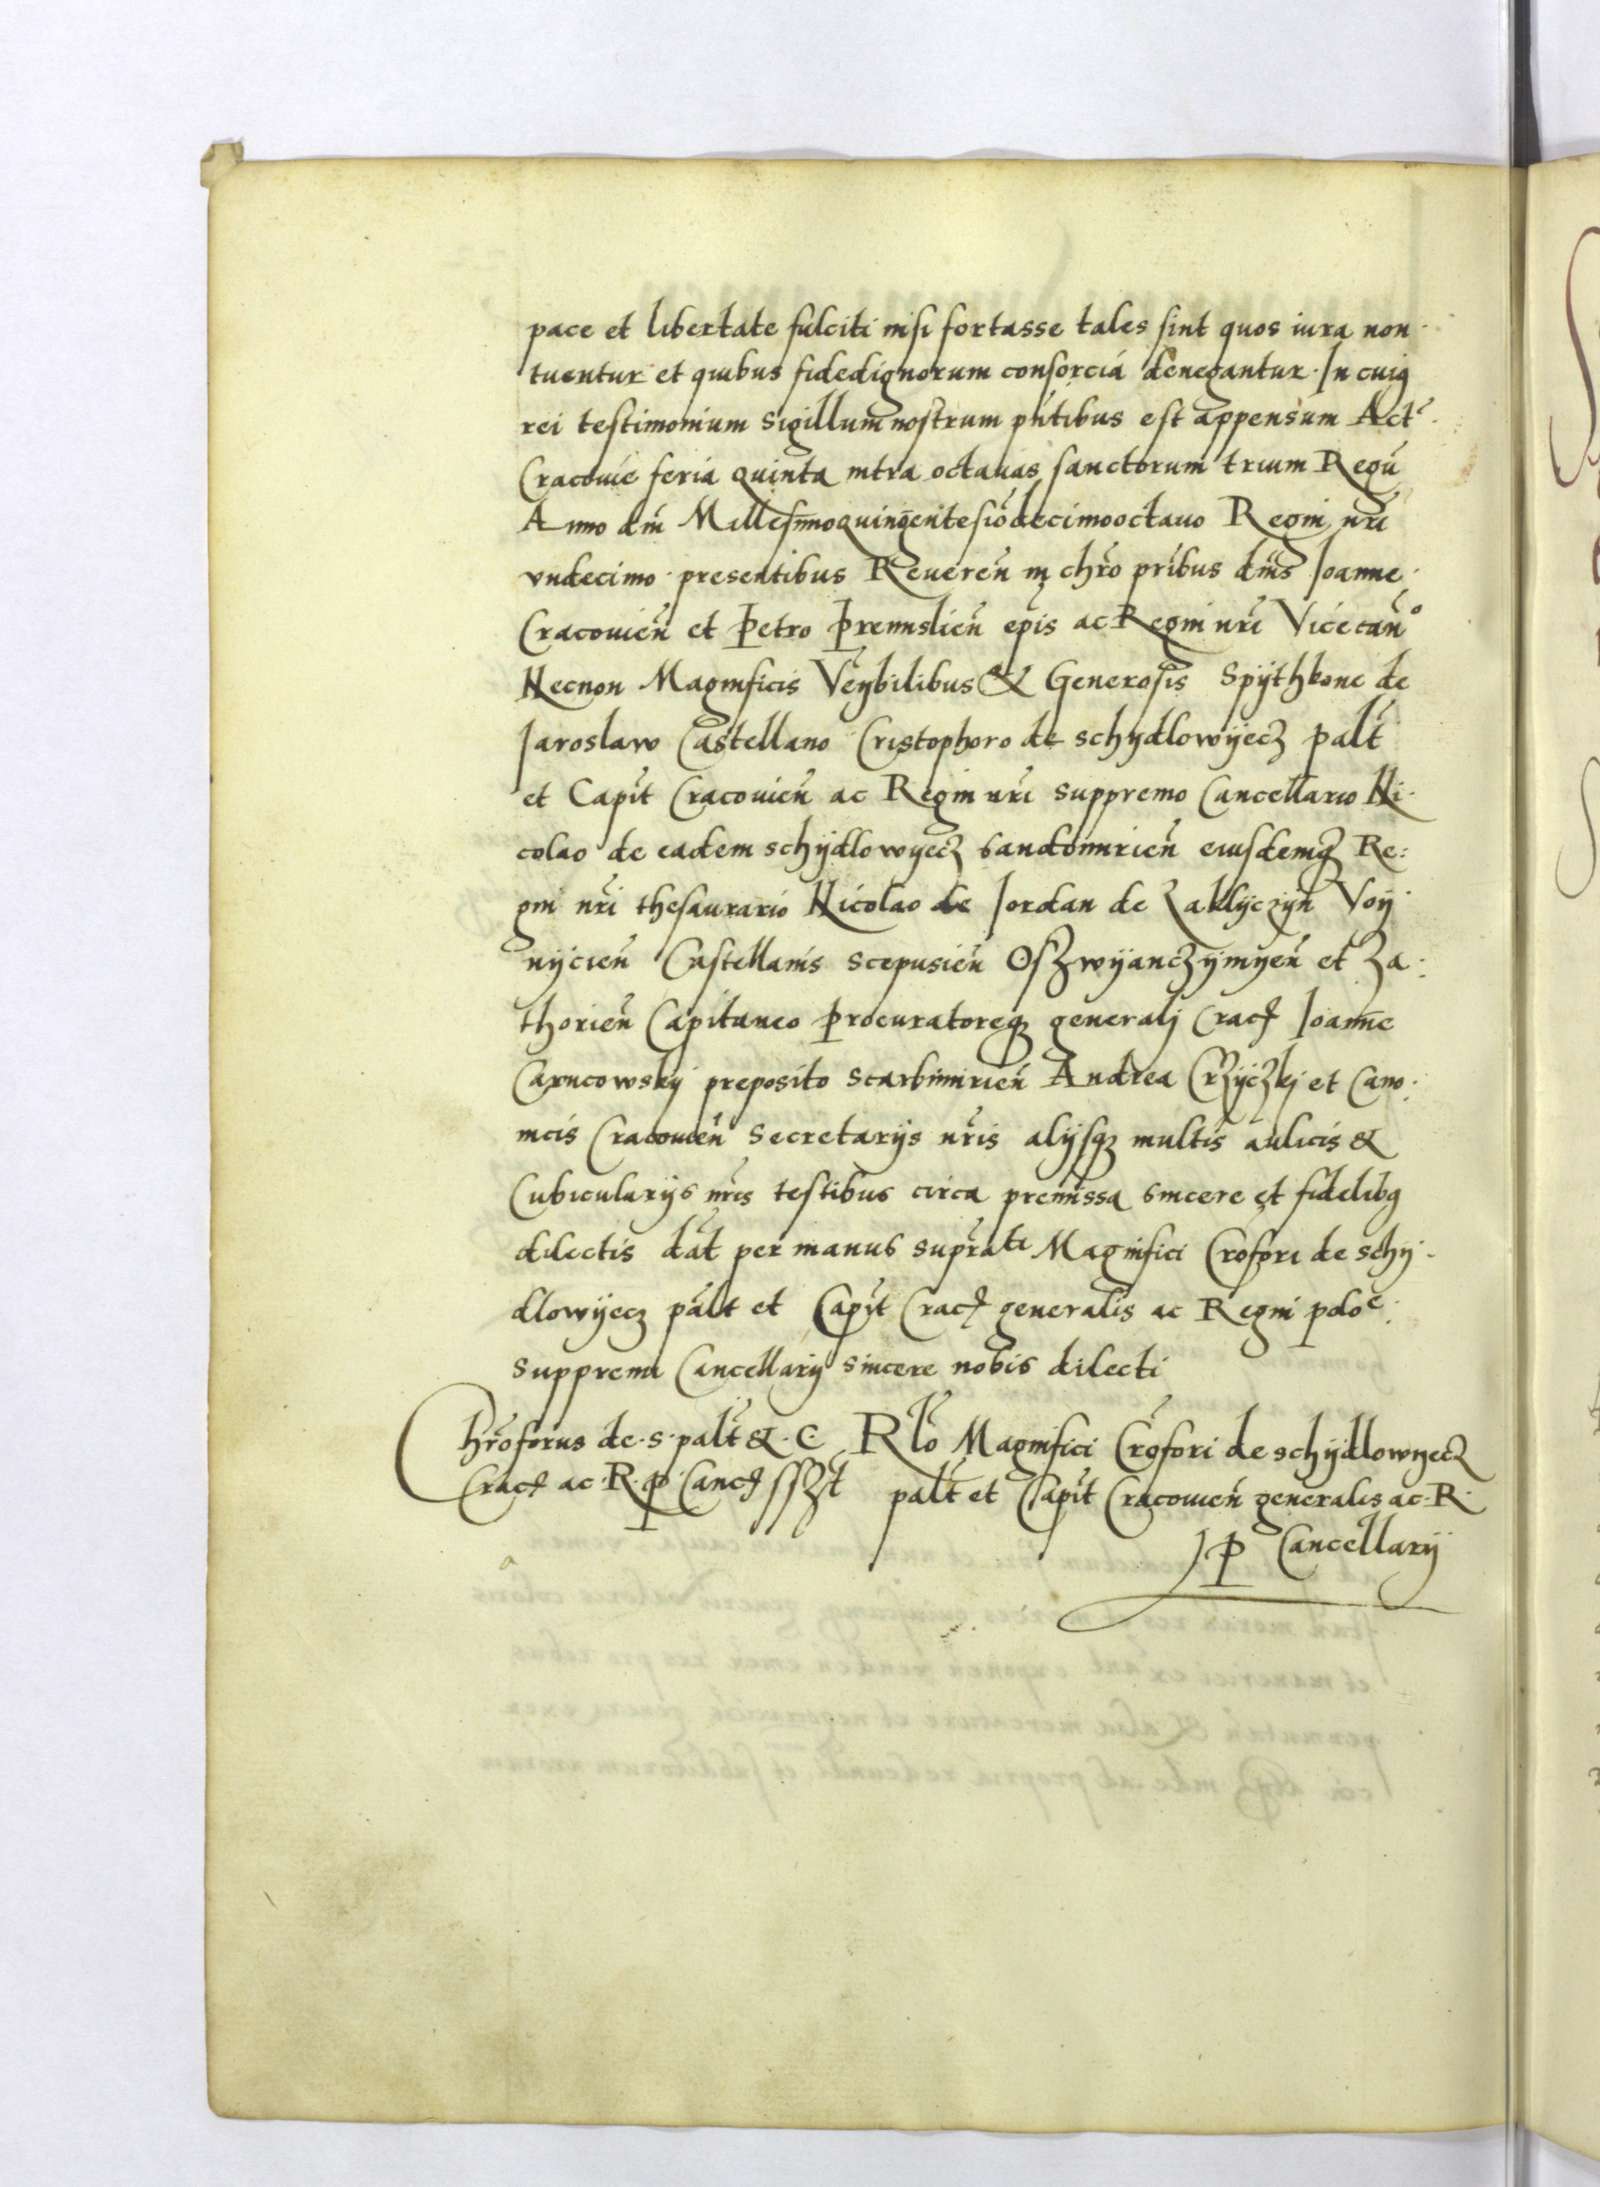 pace et libertate fulciti nisi fortasse tales sint quos iura non
tuentur et quibus fidedignorum consorcia denegantur. In cuiꝗ
rei testimonium sigillum nostrum pn̄tibus est appensum Act
Cracovie feria quinta intra octavas sanctorum trium Regū
Anno dm̄ Millesimoquingentesiōdecimooctavo Regni nr̄i
vndecimo presentibus Reveren̄ in chr̄o pr̄ibus dm̄s Ioanne
Cracovien̄ et Petro Premislien̄ ep̄is ac Regni nr̄i Vicecan̄°
Necnon Magnificis Ven̄ybilibus & Generosis Spythkone de
Iaroslaw Castellano Cristophoro de schydlowyecz palt̄
et Capit̄ Cracovien̄ ac Regni nr̄i suppremo Cancellario Ni
colao de eadem schydlowyecz Sandomirien̄ eiusdemqꝫ Re:
gni nr̄i thesaurario Nicolao de Iordan de Zaklyczyn Voy
nycien̄ Castellanis scepusien̄ Oszwyanczymyen̄ et Za:
thorien̄ Capitaneo Procuratoreqꝫ generalj Crac̄ Ioanne
Carncowsky preposito scarbimirien̄ Andrea Crzyczkj et Cano:
nicis Cracovien̄ secretarijs nr̄is alijsqꝫ multis aulicis &
Cubicularijs nr̄is testibus circa premissa sincere et fidelibꝗ
dilectis dat̄ per manus supr̄ati Magnifici Crofori de schy
dlowyecz palt̄ et Capit̄ Crac̄ generalis ac Regni poloe:
suppremi Cancellarij sincere nobis dilecti
Chr̄oforus de·s·palt̄ &·C· Rl̄o Magnifici Crofori de schydlowyecz
Crac̄ ac·R·P·Canc̄ sszt palt̄ et Capit̄ Cracovien̄ generalis ac·R·
P Cancellarij